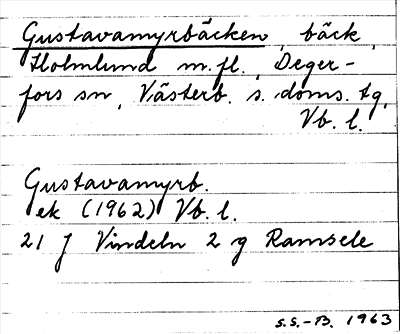 Gustavamyrbäcken, bäck,
Holmlund m.fl., Deger-
fors sn, Västerb. s. doms. tg,
Vb. l.
Gustavamyrb.
ek (1962) Vb. l.
21 J Vindeln 2 g Ramsele
S.S.-B. 1963